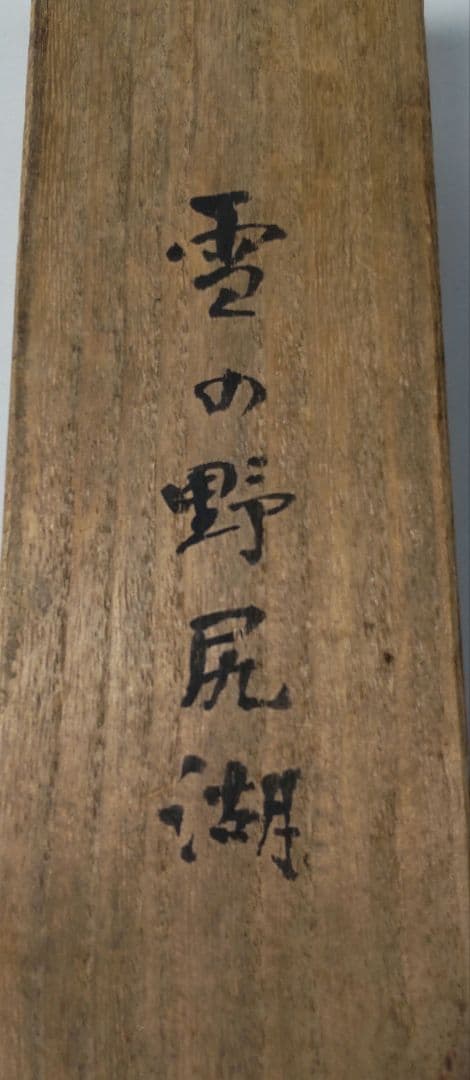 雪の野尻湖